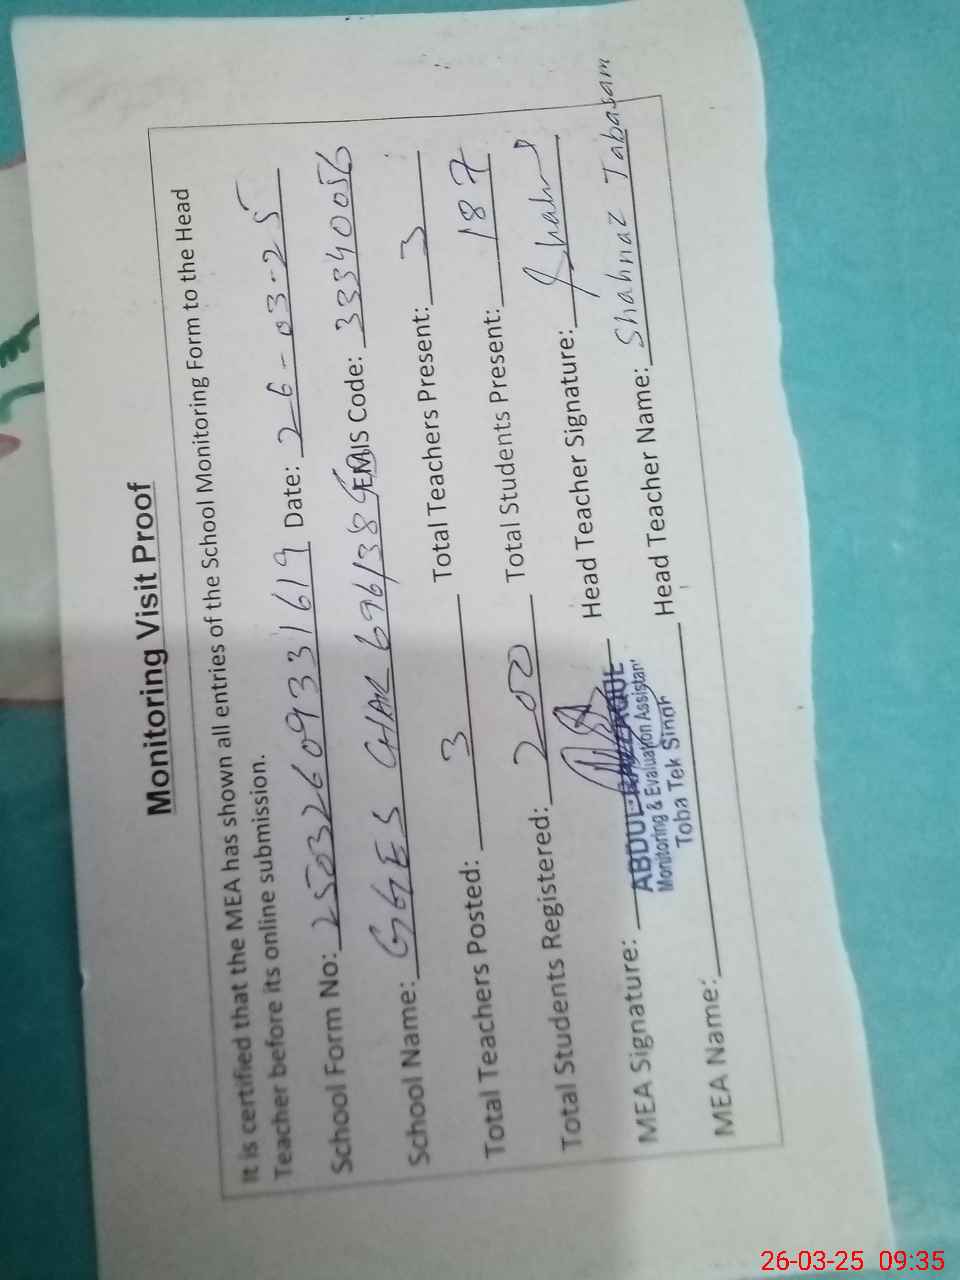 Monitoring Visit Proof
It is certified that the MEA has shown all entries of the School Monitoring Form to the Head
Teacher before its online submission.
School Form No: 25032609331619 Date: 26-03-25
School Name: GGES Chak 696/38 EMIS Code: 33340056
Total Teachers Posted: 3 Total Teachers Present: 3
Total Students Registered: 200 Total Students Present: 187
MEA Signature: Head Teacher Signature: Shahn
ABDUL
Monitoring & Evaluation Assistant
Toba Tek Singh
MEA Name: Head Teacher Name: Shahnaz Tabasam
26-03-25 09:35